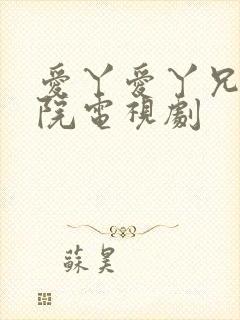 愛丫愛丫兄
院電視劇
蘇昊